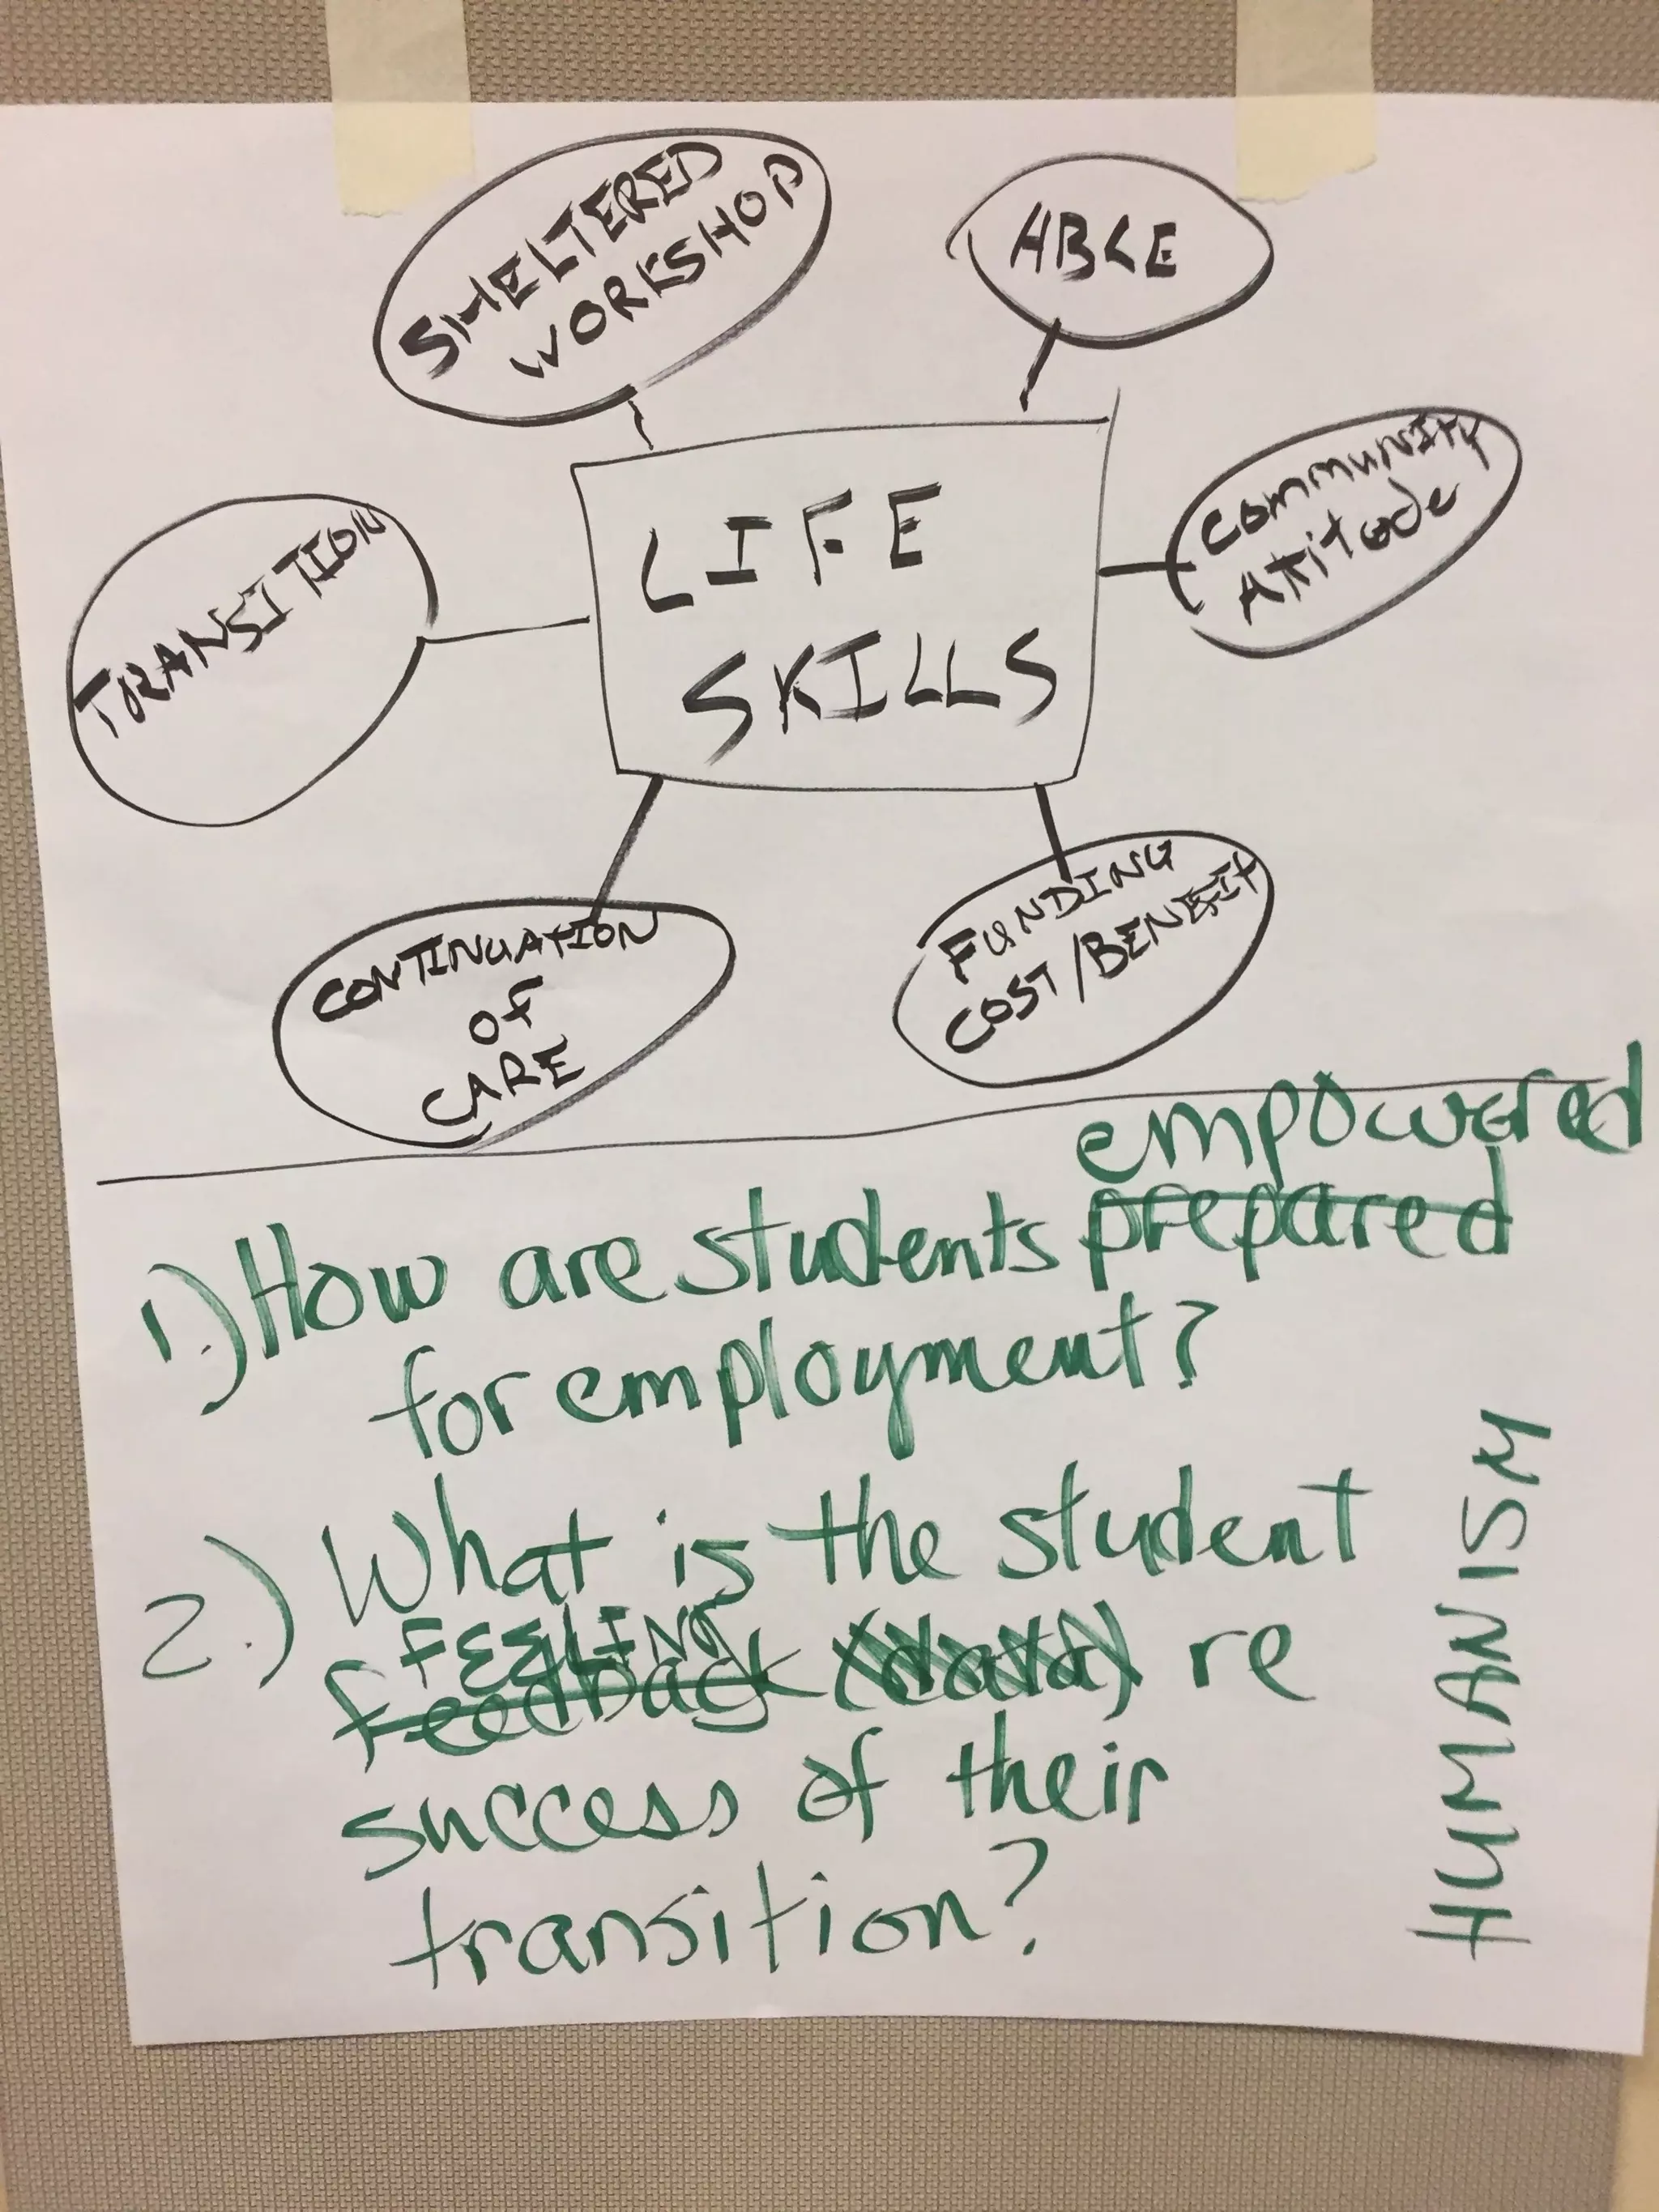 SHELTERED
WORKSHOP
ABLE
TRANSITION
LIFE
SKILLS
COMMUNITY
Attitude
CONTINUATION
OF
CARE
FUNDING
COST/BENEFIT
empowered
1.) How are students prepared
for employment?
2.) What is the student
FEELING
feedback (data) re
success of their
transition?
HUMANISM